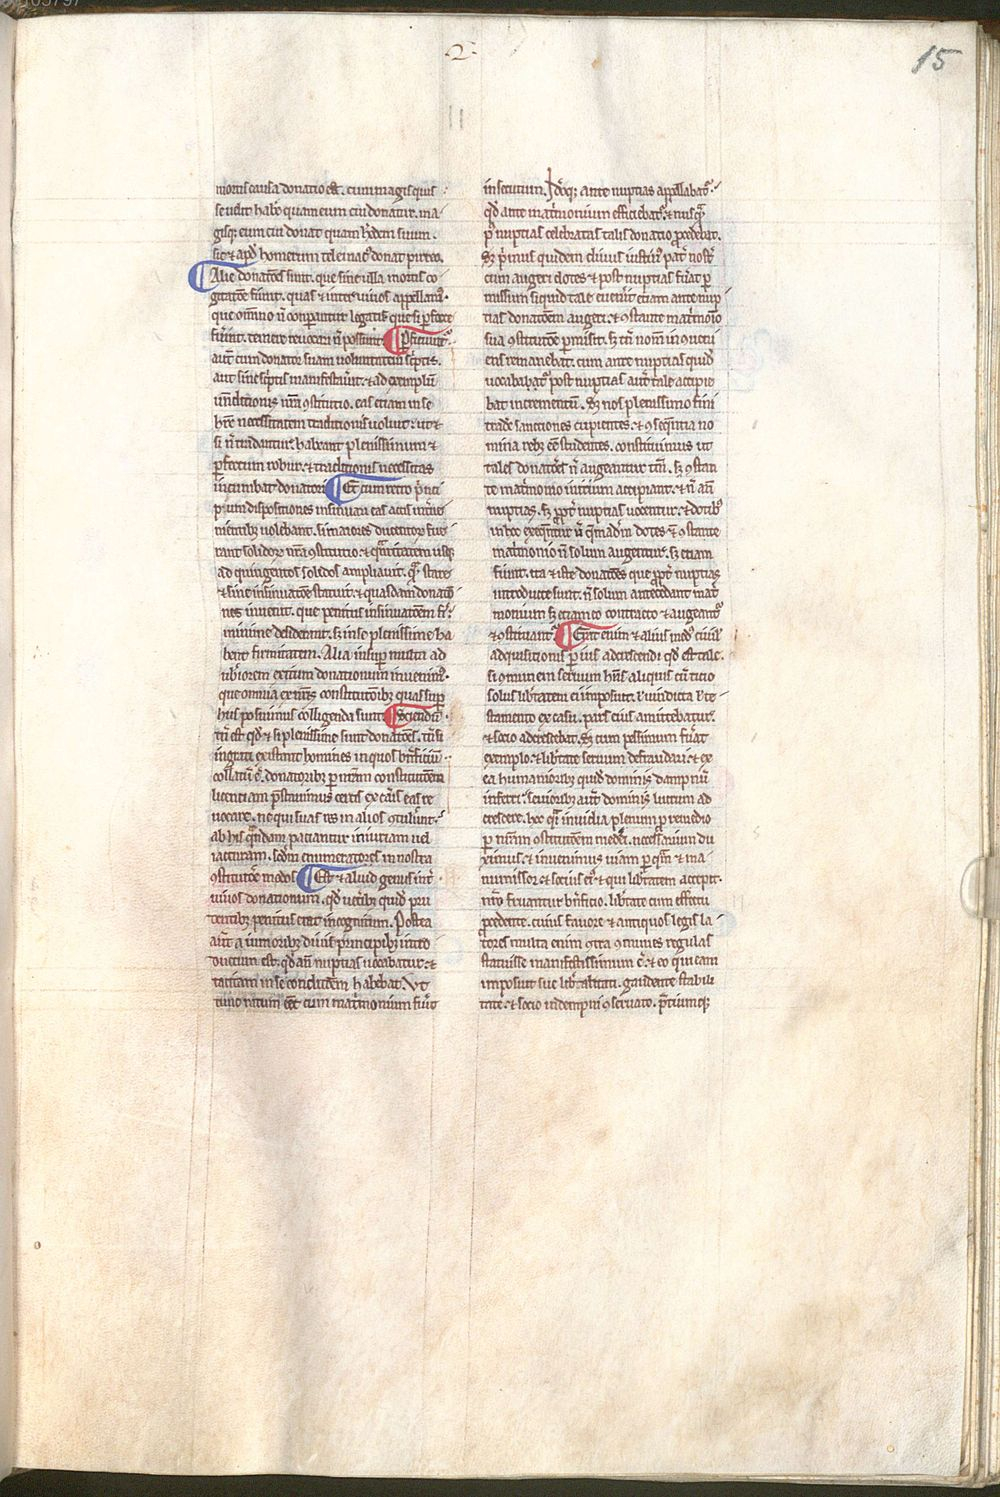 15
II
mortis causa donatio est. cum magis quis
se uelit habere quam eum cui donatur. ma
gisque eum cui donat quam heredem suum.
sic et apud homerum telemacus donat pireo.
Alie donationes sunt. que sine ulla mortis co
gitatione fiunt. quas et inter uiuos appellamus.
que omnino non conparantur legatis que si perfecte
fuerint. temere reuocari non possunt. Perficiuntur
aut cum donator suam uoluntatem scriptis.
aut sine scriptis manifestauerit. et ad exemplum
uenditionis nostra constitutio. eas etiam in se
habere necessitatem traditionis uoluit. ut et
si non tradantur habeant plenissimum et
perfectum robur. et traditionis necessitas
incumbat donatori. Et cum retro princi
pum dispositiones insinuari eas actis interue
nientibus uolebant. si maiores ducentorum fue
rant solidorum nostra constitutio. et quantitatem usque
ad quingentos solidos ampliauit. quam stare
et sine insinuatione statuit. et quasdam donatio
nes inuenit. que penitus insinuationem fieri
minime desiderent. sed in se plenissime ha
bent firmitatem. Alia insuper multa ad
uberiorem exitum donationum inuenimus.
que omnia ex nostris constitutionibus quas super
hiis posuimus colligenda sunt. Sciendum
tamen est quod et si plenissime sunt donationes. tamen si
ingrati existant homines in quos beneficium
collatum est. donatoribus per nostram constitutionem
licentiam prestauimus certis ex causis eas re
uocare. ne qui suas res in alios contulerunt.
ab his quandam paciantur iniuriam uel
iacturam. secundum enumeratores in nostra
constitutione modos. Est et aliud genus inter
uiuos donationum. quod ueteribus quidem pru
tentibus penitus erat incognitum. Postea
autem a iunioribus diuis principibus intro
ductum est. quod ante nuptias uocabatur. et
tacitam in se conditionem habebat. Vt
tunc ratum esset cum matrimonium fuerit
insecutum. Ideoque ante nuptias appellabatur.
quod ante matrimonium efficiebatur. et nusquam
post nuptias celebratas talis donatio procedebat.
Sed primus quidem diuus iustinus pater noster
cum augeri dotes et post nuptias fuerat per
missum si quid tale euenerit etiam ante nup
tias donationem augeri. et constante matrimonio
sua constitutione permisit. sed tamen nomen inconueni
ens remanebat. cum ante nuptias quidem
uocabatur post nuptias autem tale accipie
bat incrementum. Sed nos plenissimo fini
tradere sanctiones cupientes. et consequentia no
mina rebus esse studentes. constituimus ut
tales donationes non augeantur tantum. sed constan
te matrimonio initium accipiant. et non ante
nuptias. sed propter nuptias uocentur. et dotibus
in hoc exequentur ut quemadmodum dotes et constante
matrimonio non solum augentur. sed etiam
fiunt. ita et iste donationes que propter nuptias
introducte sunt. non solum antecedant matri
monium sed etiam eo contracto et augeantur
et constituantur. Erat enim et alius modus ciuilis
adquisitionis per ius adcrescendi quod est tale.
si communem seruum habens aliquis cum ticio
solus libertatem ei imposuit. uel uindicta uel te
stamento ex casu. pars eius amittebatur.
et socio adcrescebat. Sed cum pessimum fuerat
exemplo. et libertate seruum defraudari. et ex
ea humanioribus quidem dominis dampnum
inferri. seuioribus autem dominis lucrum ad
crescere. hoc quasi inuidia plenum pio remedio
per nostram constitutionem mederi. necessarium du
ximus. et inuenimus uiam per quam et ma
numissor. et socius eius. et qui libertatem accepit.
nostro fruantur beneficio. libertate cum effectu
procedente. cuius fauore et antiquos legis la
tores multa etiam contra communes regulas
statuisse manifestissimum est. et eo qui eam
imposuit sue liberalitati. gaudente stabili
tate. et socio indempni conseruato. pretiumque